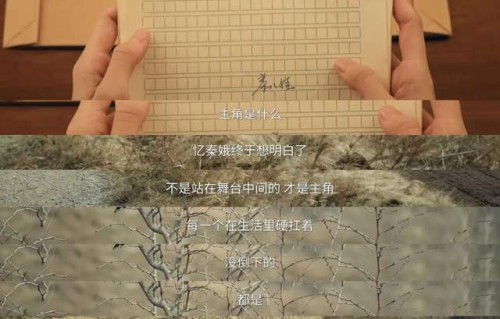 主角是什么
忆秦娥终于想明白了
不是站在舞台中间的 才是主角
每一个在生活里硬扛着
没倒下的
都是